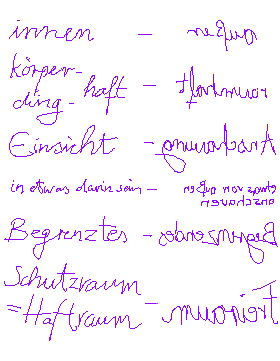 innen – außen
körper-
ding- haft – raumhaft
Einsicht –
in etwas darin sein – etwas von außen
anschauen
Begrenztes – Begrenzendes
Schutzraum
=Haftraum –